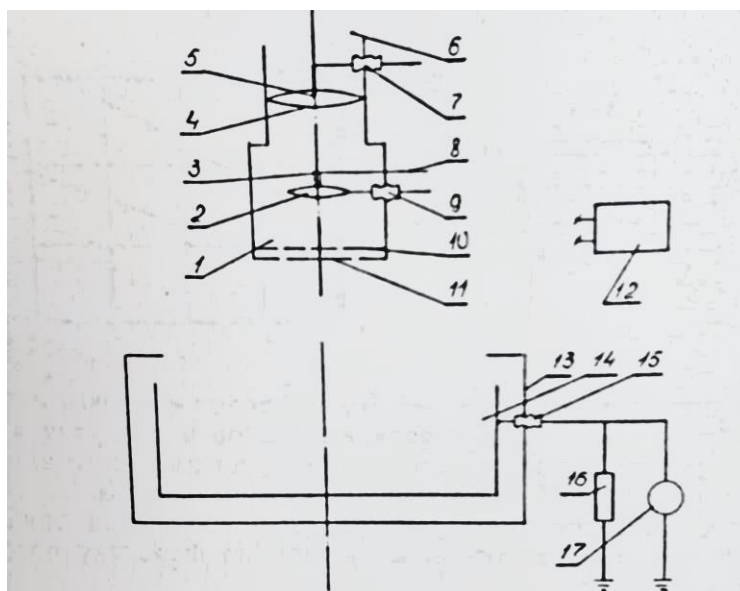 5
6
4
7
3
8
2
9
1
10
11
12
13
14
15
16
17